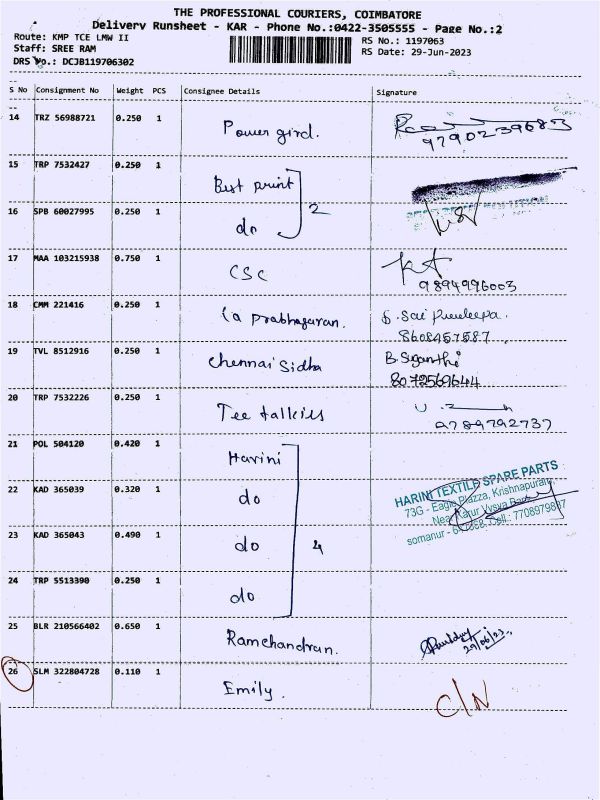 THE PROFESSIONAL COURIERS, COIMBATORE
Delivery Runsheet - KAR - Phone No.:0422-3505555 - Page No.:2
Route: KMP TCE LMW II
RS No.: 1197063
Staff: SREE RAM
RS Date: 29-Jun-2023
DRS No.: DCJB119706302
S No Consignment No Weight PCS Consignee Details Signature
14 TRZ 56988721 0.250 1 Power gird.
9790239683
15 TRP 7532427 0.250 1 Best print
2
16 SPB 60027995 0.250 1 do
17 MAA 103215938 0.750 1 CSC
9894996003
18 CMM 221416 0.250 1 Ca Prabhagaran.
8608457587
19 TVL 8512916 0.250 1 Chennai Sidha
8072569644
20 TRP 7532226 0.250 1 Tee talkies
9789792737
21 POL 504120 0.420 1 Harini
22 KAD 365039 0.320 1 do
HARINI TEXTILE SPARE PARTS
73G - Eagle Plazza, Krishnapuram,
Near Karur Vysya Bank
somanur - Cell : 7708979887
23 KAD 365043 0.490 1 do
4
24 TRP 5513390 0.250 1 do
25 BLR 210566402 0.650 1 Ramchandran.
29/06/23.
26 SLM 322804728 0.110 1 Emily.
C/N